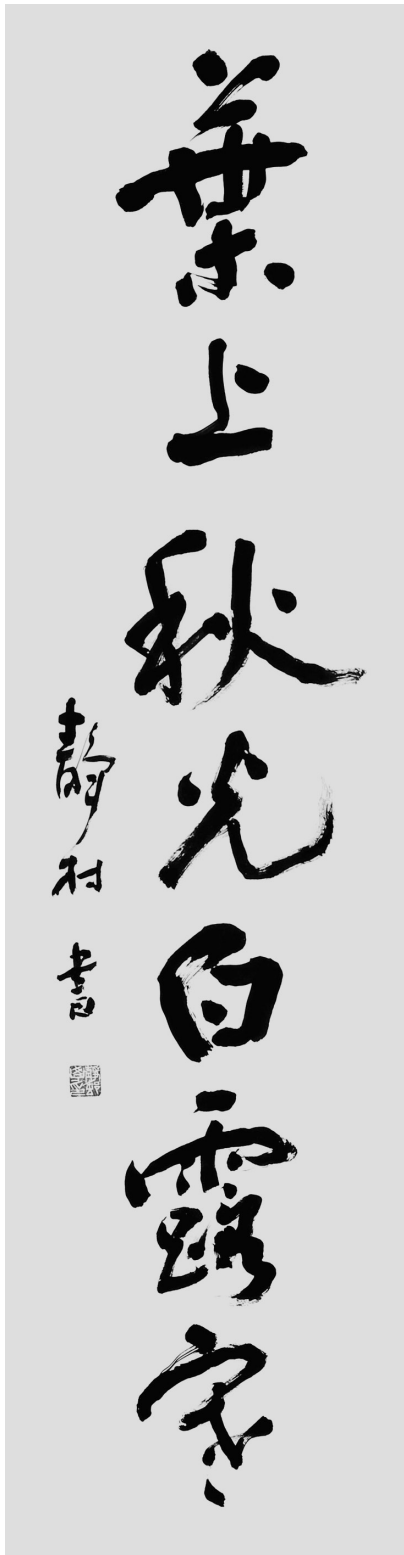 葉上秋光白露寒
靜村書